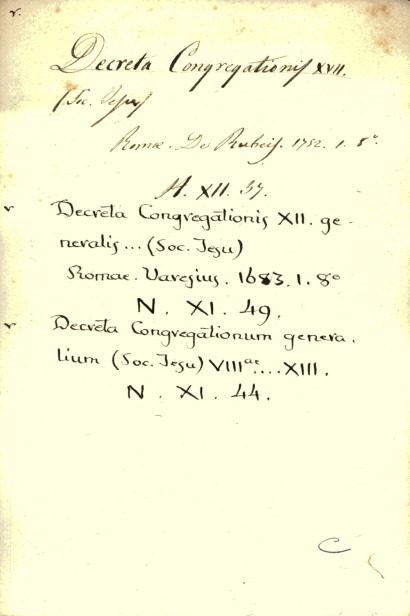 v.
Decreta Congregationis XVII.
(Soc. Jesu)
Romæ. De Rubeis. 1752. 1. 8°
H. XII. 37.
v Decreta Congregationis XII. ge-
neralis... (Soc. Jesu)
Romae. Varesius. 1683. 1. 8°
N. XI. 49.
v Decreta Congregationum genera.
lium (Soc. Jesu) VIIIae....XIII.
N. XI. 44.
C